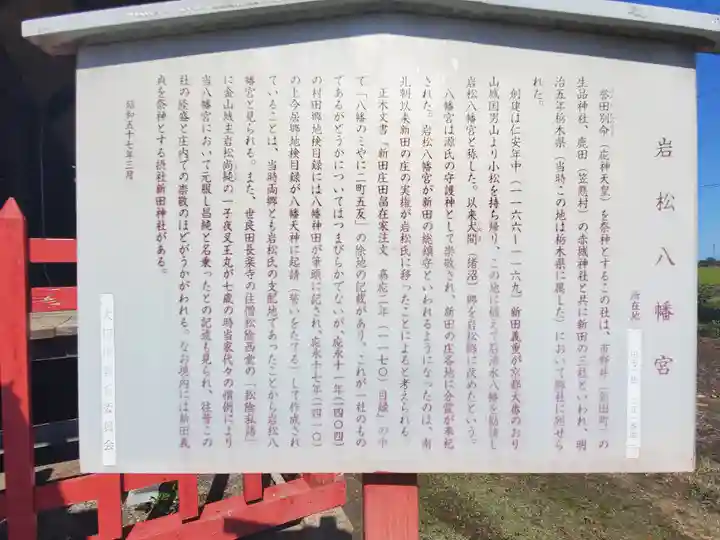 岩松八幡宮
所在地
誉田別命（応神天皇）を祭神とするこの社は、市野井（新田町）の
生品神社、鹿田（笠懸村）の赤城神社と共に新田の三社といわれ、明
治五年栃木県（当時この地は栃木県に属した）において郷社に列せら
れた。
創建は仁安年中（一一六六～一一六九）新田義重が京都大番のおり
山城国男山より小松を持ち帰り、この地に植えて石清水八幡を勧請し
岩松八幡宮と称した。以来犬間（渚沼）郷を岩松郷に改めたという。
八幡宮は源氏の守護神として崇敬され、新田の庄各地に分霊が奉祀
された。岩松八幡宮が新田の総鎮守といわれるようになったのは、南
北朝以来新田の庄の実権が岩松氏に移ったことによると考えられる
正木文書「新田庄田畠在家注文　嘉応二年（一一七〇）目録」の中
で「八幡のミやに二町五反」の除地の記載があり。これが一社のもの
であるがどうかについてはつまびらかでないが、応永十一年（一四〇四）
の村田郷地検目録には八幡神田が筆頭に記され、応永十七年（一四一〇）
の上今居郷地検目録が八幡天神に起請（誓いをたてる）して作成され
ていることは、当時両郷とも岩松氏の支配地であったことから岩松八
幡宮と見られる。また、世良田長楽寺の住僧松陰西堂の「松陰私語」
に金山城主岩松尚純の一子夜叉王丸が七歳の時当家代々の慣例により
当八幡宮において元服し昌純と名乗ったとの記述も見られ、往昔この
社の隆盛と庄内での崇敬のほどがうかがわれる。なお境内には新田義
貞を祭神とする摂社新田神社がある。
昭和五十七年三月